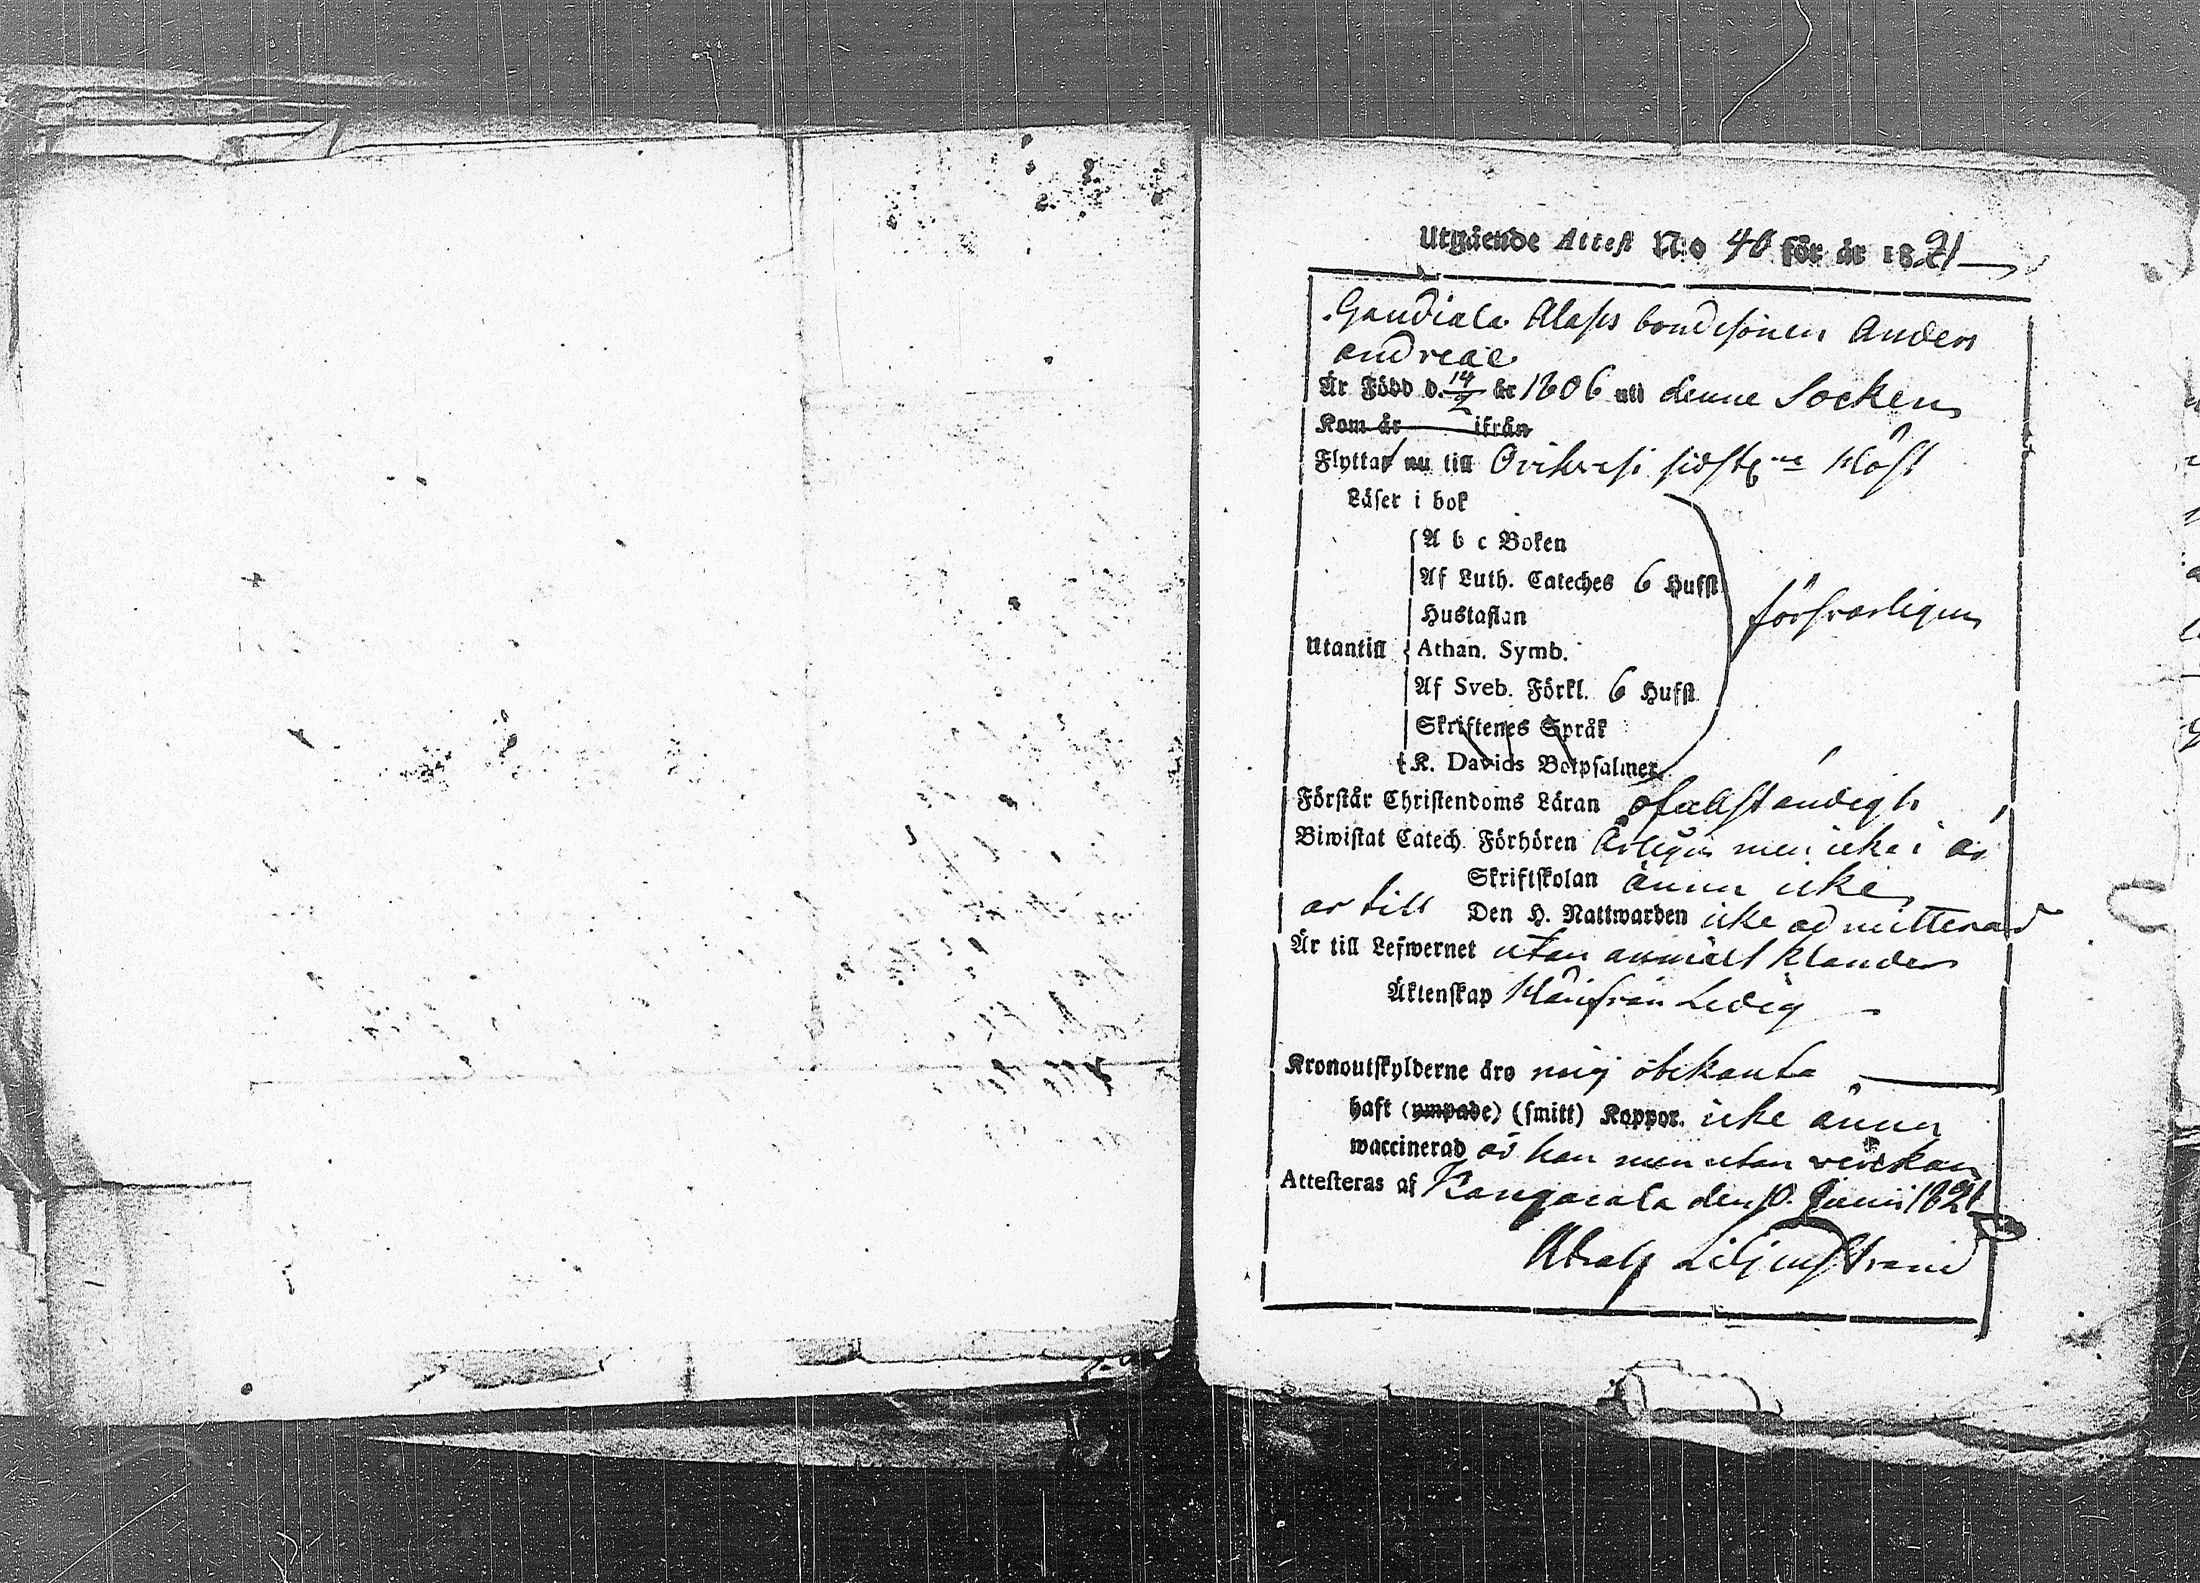 Utgående Attest N:o 40 för år 1821
Gaudiala Alass bondesonen Anders
andreae
Är Född d. 14/2 år 1806 uti denne Socken
Kom år ifrån
Flyttar nu till Orihvesi sidstl. höst
Läser i bok
A b c Boken
Af Luth. Cateches 6 Hufst.
Hustaflan
försvarligen
Utantill Athan. Symb.
Af Sveb. Förkl. 6 Hufst.
Skriftenes Språk
K. Davids Botpsalmer
Förstår Christendoms Läran ofullständigt
Biwistat Catech. Förhören Årligen men icke i år
Skriftskolan ännu icke
är till Den H. Nattwarden icke admitterad
Är till Lefwernet utan anmält klander
Äktenskap härifrån Ledig
Kronoutskylderne äro mig obekanta
haft (ympade) (smitt) Koppor. icke ännu
waccinerad är han men utan verkan
Attesteras af Kangasala den 10. Junii 1821
Adolf Liljenstrand